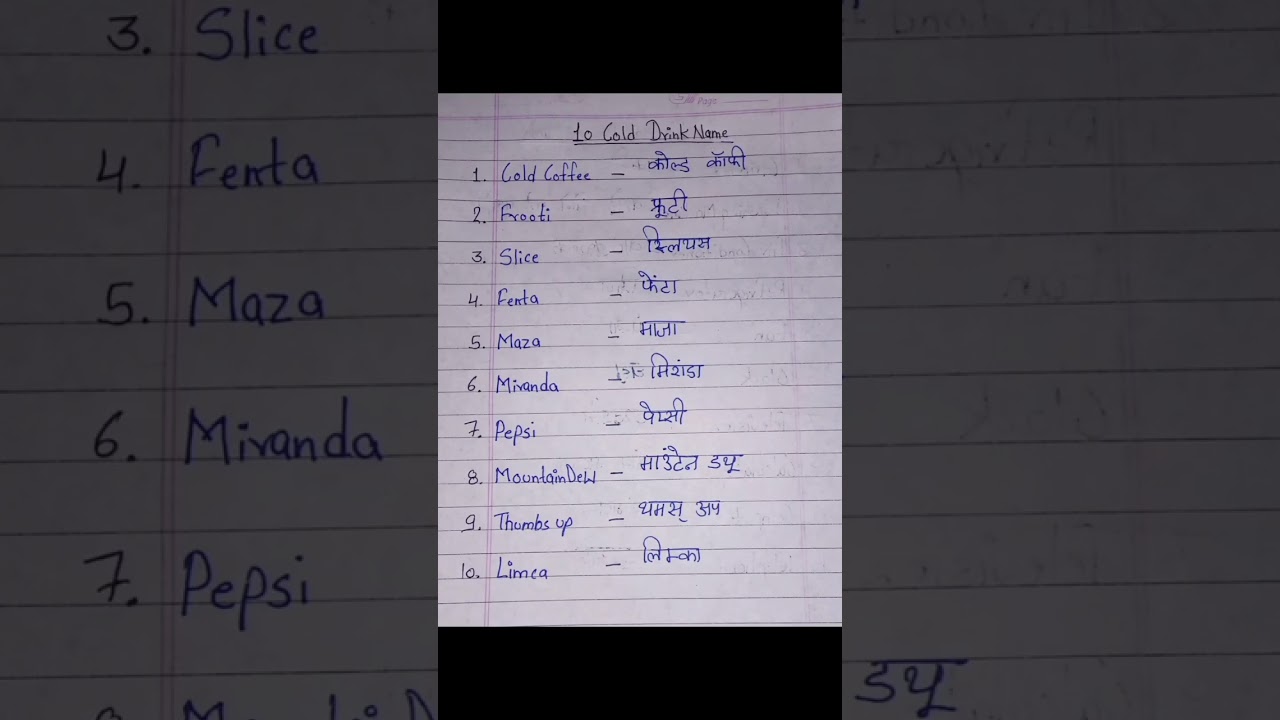 10 Cold Drink Name
1. Cold Coffee – कोल्ड कॉफी
2. Frooti – फ्रूटी
3. Slice – स्लियस
4. Fenta – फेंटा
5. Maza – माजा
6. Miranda – मिरांडा
7. Pepsi – पेप्सी
8. Mountain Dew – माउंटेन डयू
9. Thumbs up – थमस् अप
10. Limca – लिम्का
3. Slice
4. Fenta
5. Maza
6. Miranda
7. Pepsi
डयू